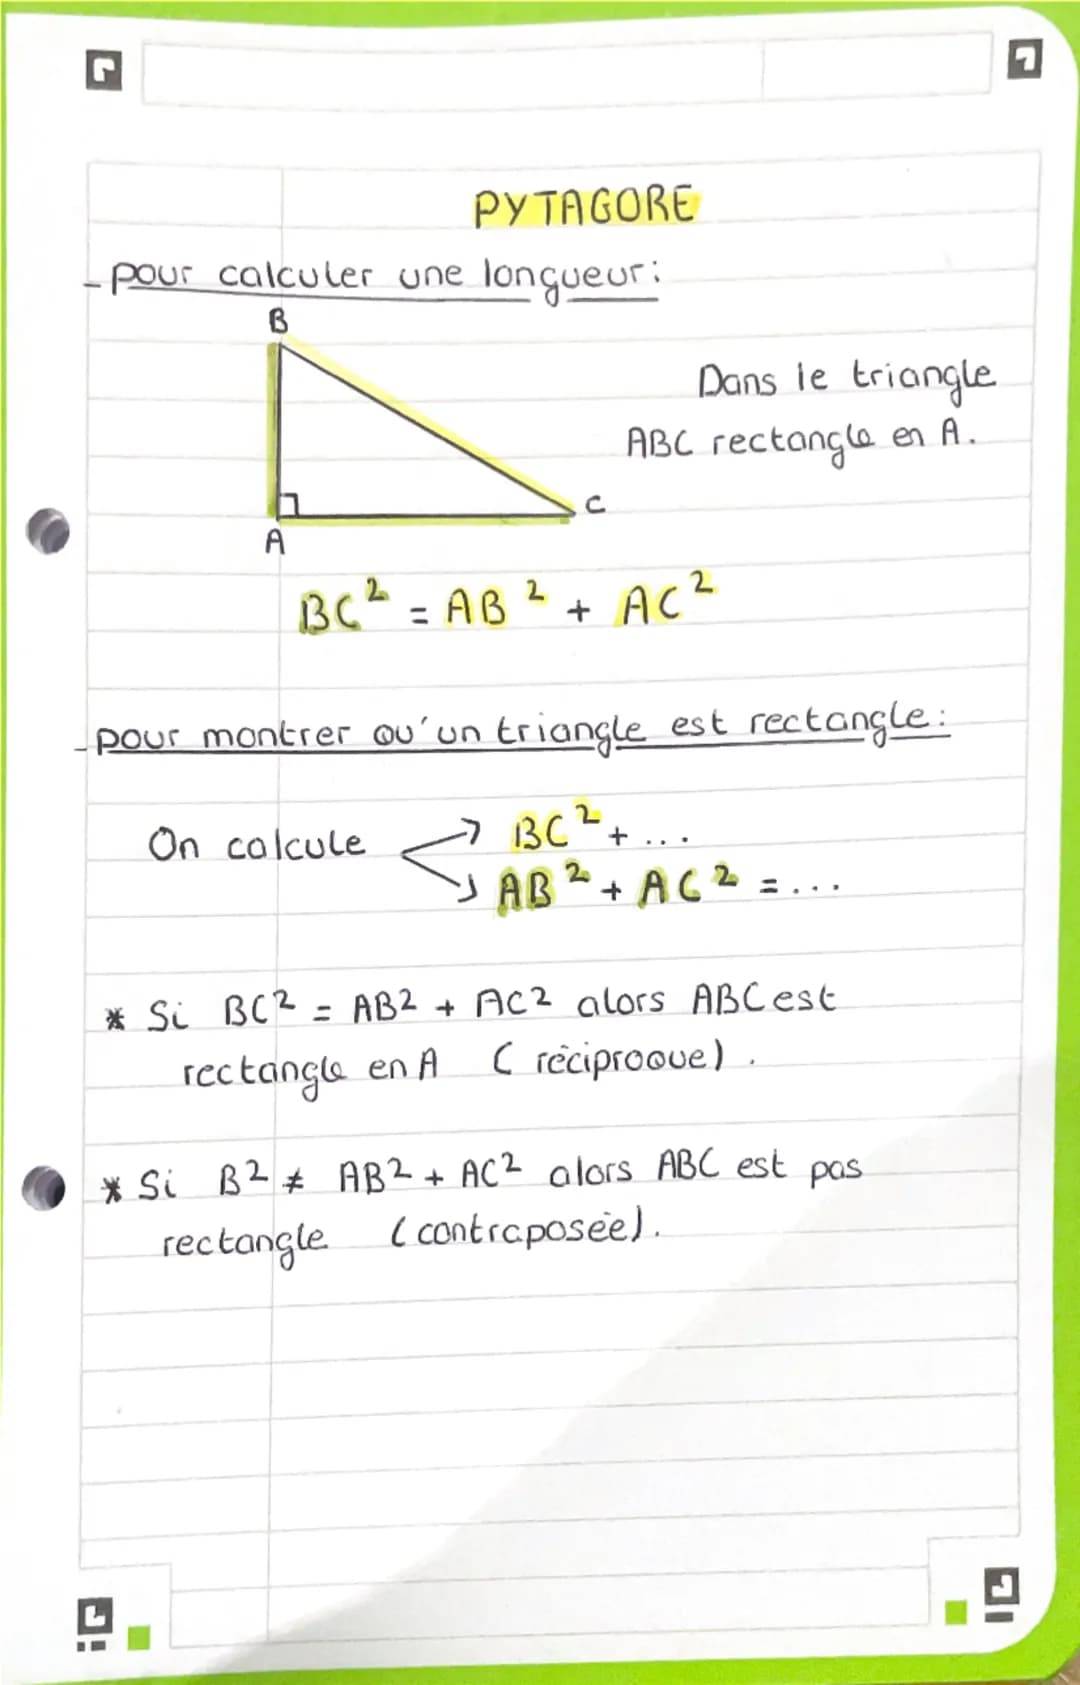 PYTAGORE
- pour calculer une longueur :
B
Dans le triangle
ABC rectangle en A.
C
A
BC² = AB² + AC²
- pour montrer qu'un triangle est rectangle :
On calcule → BC² + ...
→ AB² + AC² = ...
* Si BC² = AB² + AC² alors ABC est
rectangle en A (réciproque).
* Si B² ≠ AB² + AC² alors ABC est pas
rectangle (contraposée).